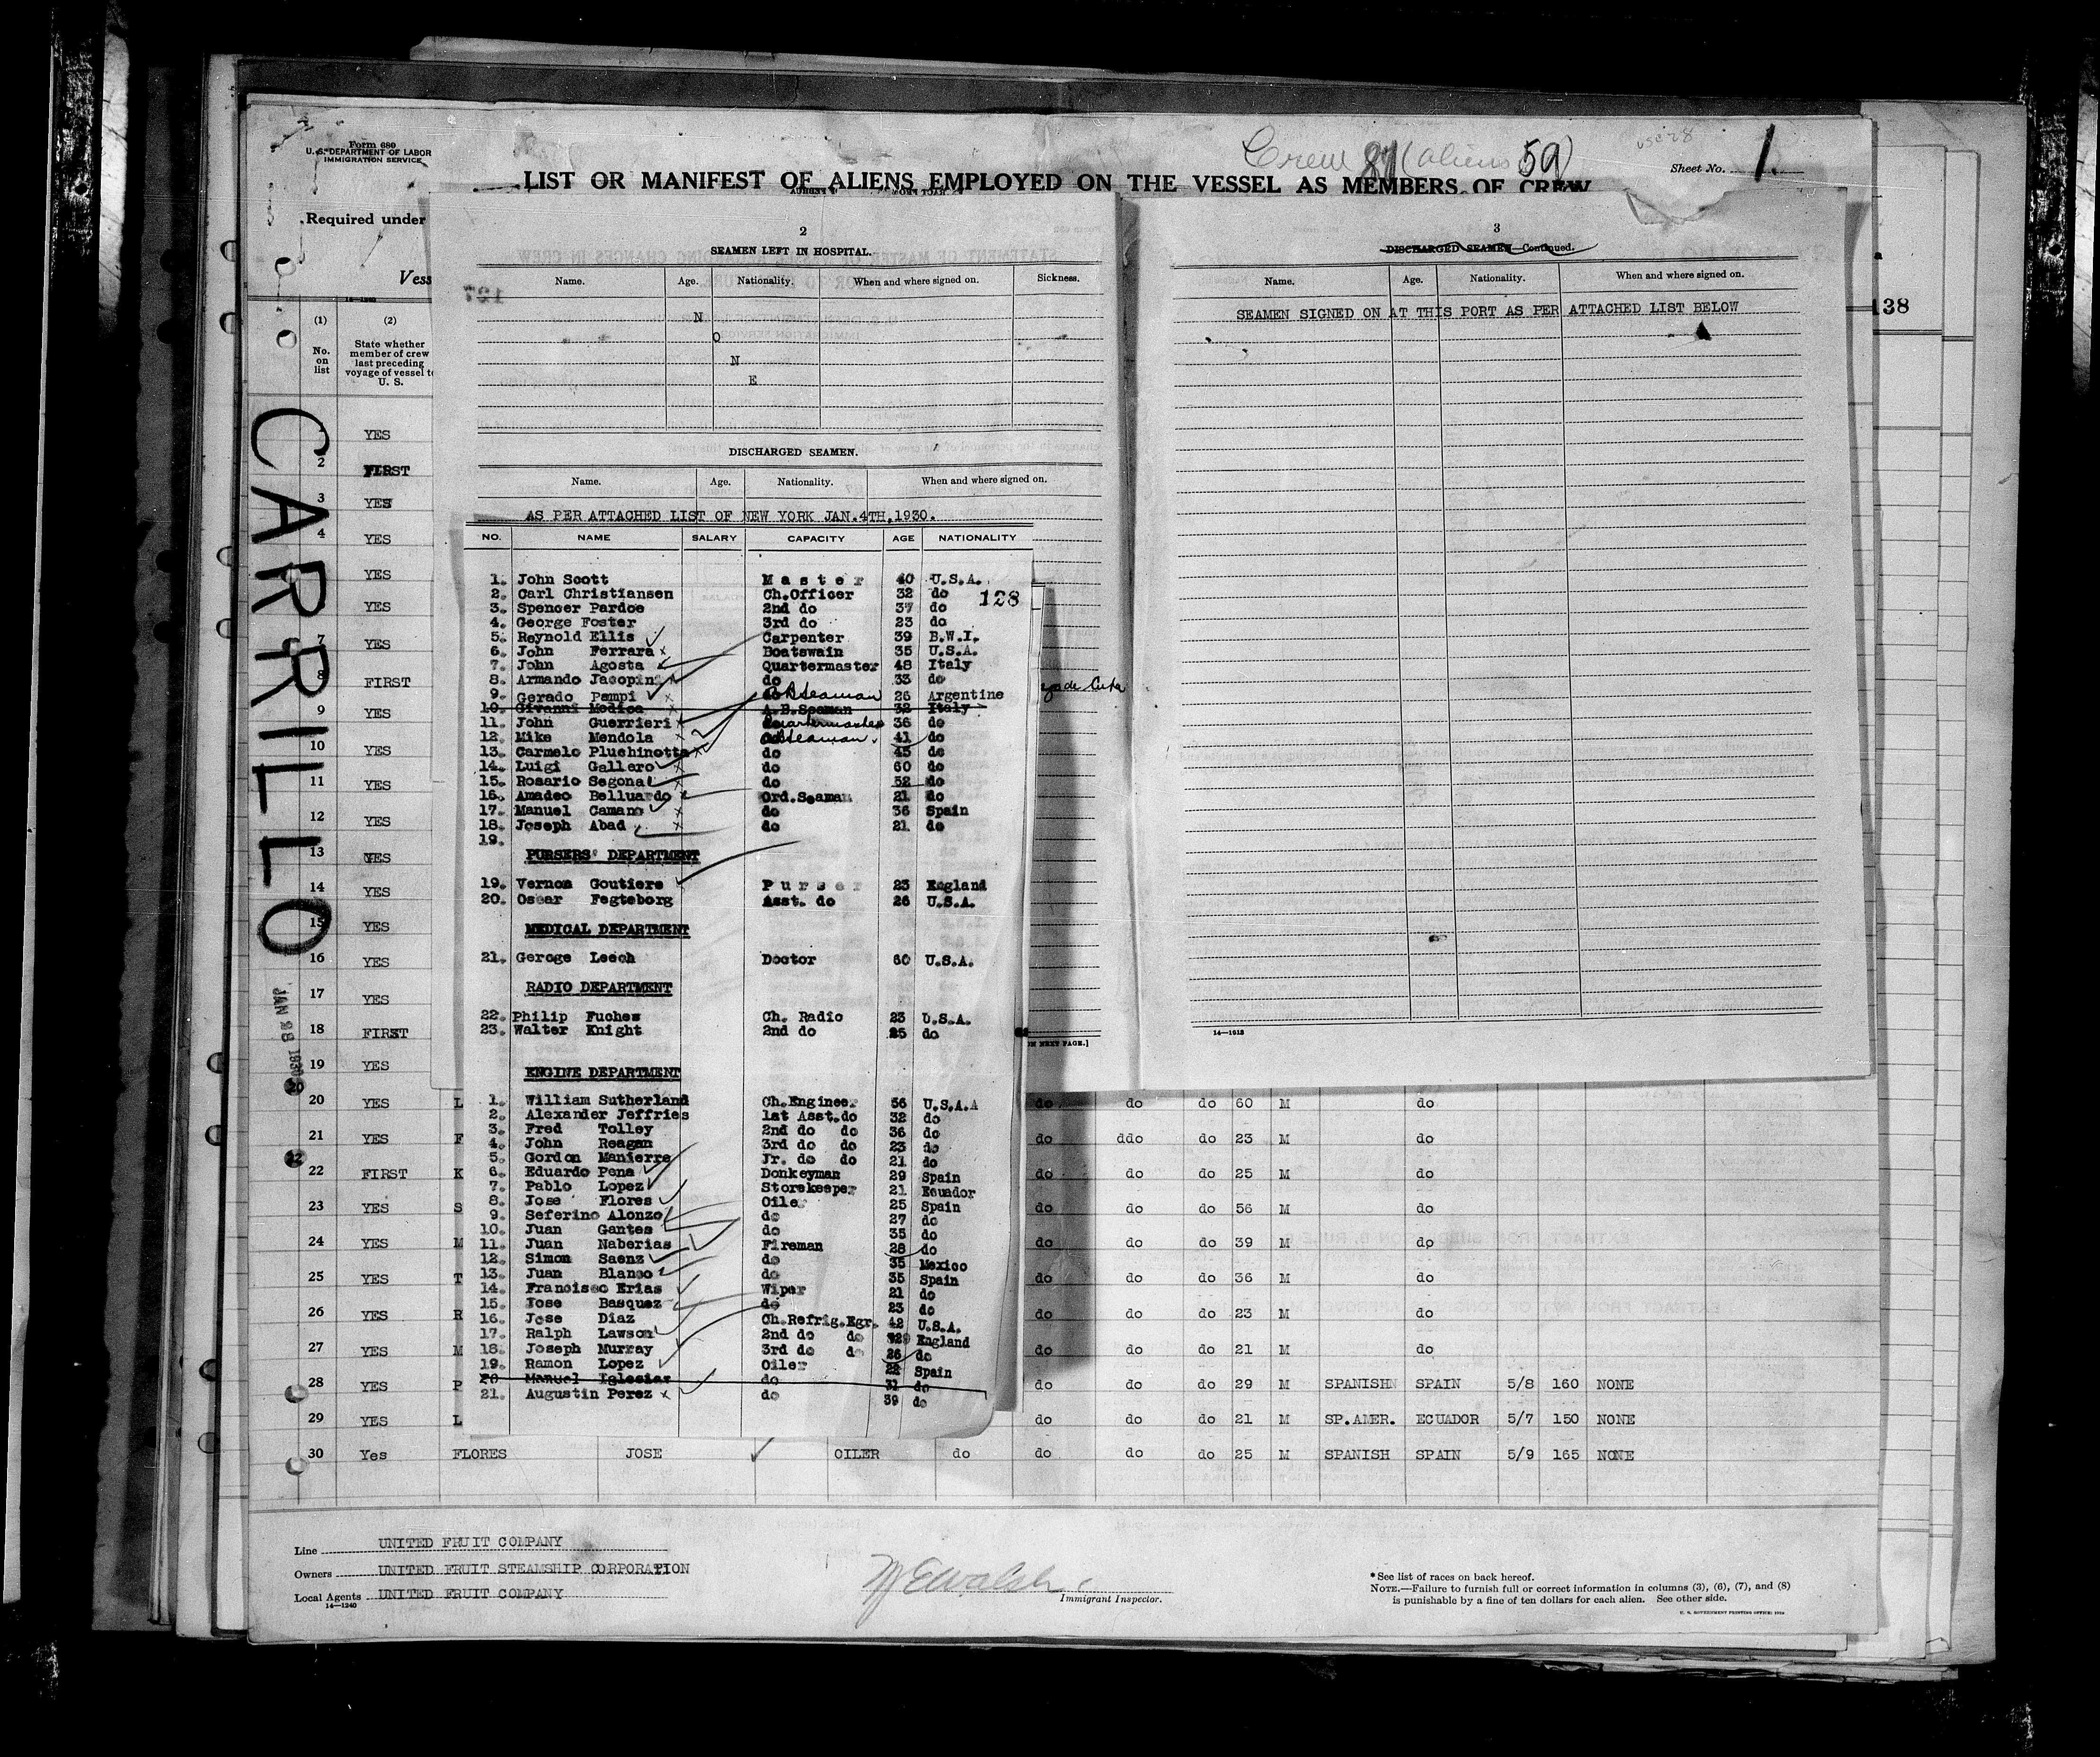 Form 680
U. S. DEPARTMENT OF LABOR
IMMIGRATION SERVICE
Crew 81 (aliens 59)
Sheet No. 1.
LIST OR MANIFEST OF ALIENS EMPLOYED ON THE VESSEL AS MEMBERS OF CREW
Required under
Vess
(1) (2)
No. on list
State whether member of crew last preceding voyage of vessel to U. S.
CARRILLO
138
1 YES
2 FIRST
3 YES
4 YES
YES
YES
7 YES
8 FIRST
9 YES
10 YES
11 YES
12 YES
13 YES
14 YES
15 YES
16 YES
17 YES
18 FIRST
19 YES
2
SEAMEN LEFT IN HOSPITAL.
Name. Age. Nationality. When and where signed on. Sickness.
N
O
N
E
DISCHARGED SEAMEN.
Name. Age. Nationality. When and where signed on.
AS PER ATTACHED LIST OF NEW YORK JAN.4TH,1930.
NO. NAME SALARY CAPACITY AGE NATIONALITY
1. John Scott Master 40 U.S.A.
128
2. Carl Christiansen Ch.Officer 32 do
3. Spencer Pardoe 2nd do 37 do
4. George Foster 3rd do 23 do
5. Reynold Ellis Carpenter 39 B.W.I.
6. John Ferrara Boatswain 35 U.S.A.
7. John Agosta Quartermaster 48 Italy
8. Armando Jacopin do 33 do
9. Gerado Pampi AB Seaman 26 Argentine
10. Givanni Modica A.B.Seaman 32 Italy
11. John Guerrieri Quartermaster 36 do
12. Mike Mendola AB Seaman. 41 do
13. Carmelo Pluchinotta do 45 do
14. Luigi Gallero do 60 do
15. Rosario Segona do 32 do
16. Amadeo Belluardo Ord.Seaman 21 do
17. Manuel Camano do 36 Spain
18. Joseph Abad do 21 do
19.
PURSERS' DEPARTMENT
19. Vernon Goutiere Purser 23 England
20. Oscar Fegteborg Asst. do 26 U.S.A.
MEDICAL DEPARTMENT
21. Geroge Leech Doctor 60 U.S.A.
RADIO DEPARTMENT
22. Philip Fuches Ch. Radio 23 U.S.A.
23. Walter Knight 2nd do 25 do
ENGINE DEPARTMENT
1. William Sutherland Ch.Engineer 56 U.S.A.
2. Alexander Jeffries 1st Asst.do 32 do
3. Fred Tolley 2nd do do 36 do
4. John Reagan 3rd do do 23 do
5. Gordon Manierre Jr. do do 21 do
6. Eduardo Pena Donkeyman 29 Spain
7. Pablo Lopez Storekeeper 21 Ecuador
8. Jose Flores Oiler 25 Spain
9. Seferino Alonzo do 27 do
10. Juan Gantes do 35 do
11. Juan Naberias Fireman 28 do
12. Simon Saenz do 35 Mexico
13. Juan Blanco do 35 Spain
14. Francisco Erias Wiper 21 do
15. Jose Basquez do 23 do
16. Jose Diaz Ch.Refrig.Egr. 42 U.S.A.
17. Ralph Lawson 2nd do do England
18. Joseph Murray 3rd do do 26 do
19. Ramon Lopez Oiler 22 Spain
20 Manuel Iglesias do 31 do
21. Augustin Perez do 39 do
3
DISCHARGED SEAMEN—Continued.
Name. Age. Nationality. When and where signed on.
SEAMEN SIGNED ON AT THIS PORT AS PER ATTACHED LIST BELOW
14—1213
ON NEXT PAGE.]
20 YES L do do do 60 M do
21 YES F do ddo do 23 M do
22 FIRST K do do do 25 M do
23 YES S do do do 56 M do
24 YES M do do do 39 M do
25 YES T do do do 36 M do
26 YES R do do do 23 M do
27 YES M do do do 21 M do
28 YES P do do do 29 M SPANISH SPAIN 5/8 160 NONE
29 YES L do do do 21 M SP.AMER. ECUADOR 5/7 150 NONE
30 Yes FLORES JOSE OILER do do do do 25 M SPANISH SPAIN 5/9 165 NONE
Line UNITED FRUIT COMPANY
Owners UNITED FRUIT STEAMSHIP CORPORATION
Local Agents UNITED FRUIT COMPANY
14—1240
W E Walsh
Immigrant Inspector.
* See list of races on back hereof.
NOTE.—Failure to furnish full or correct information in columns (3), (6), (7), and (8)
is punishable by a fine of ten dollars for each alien. See other side.